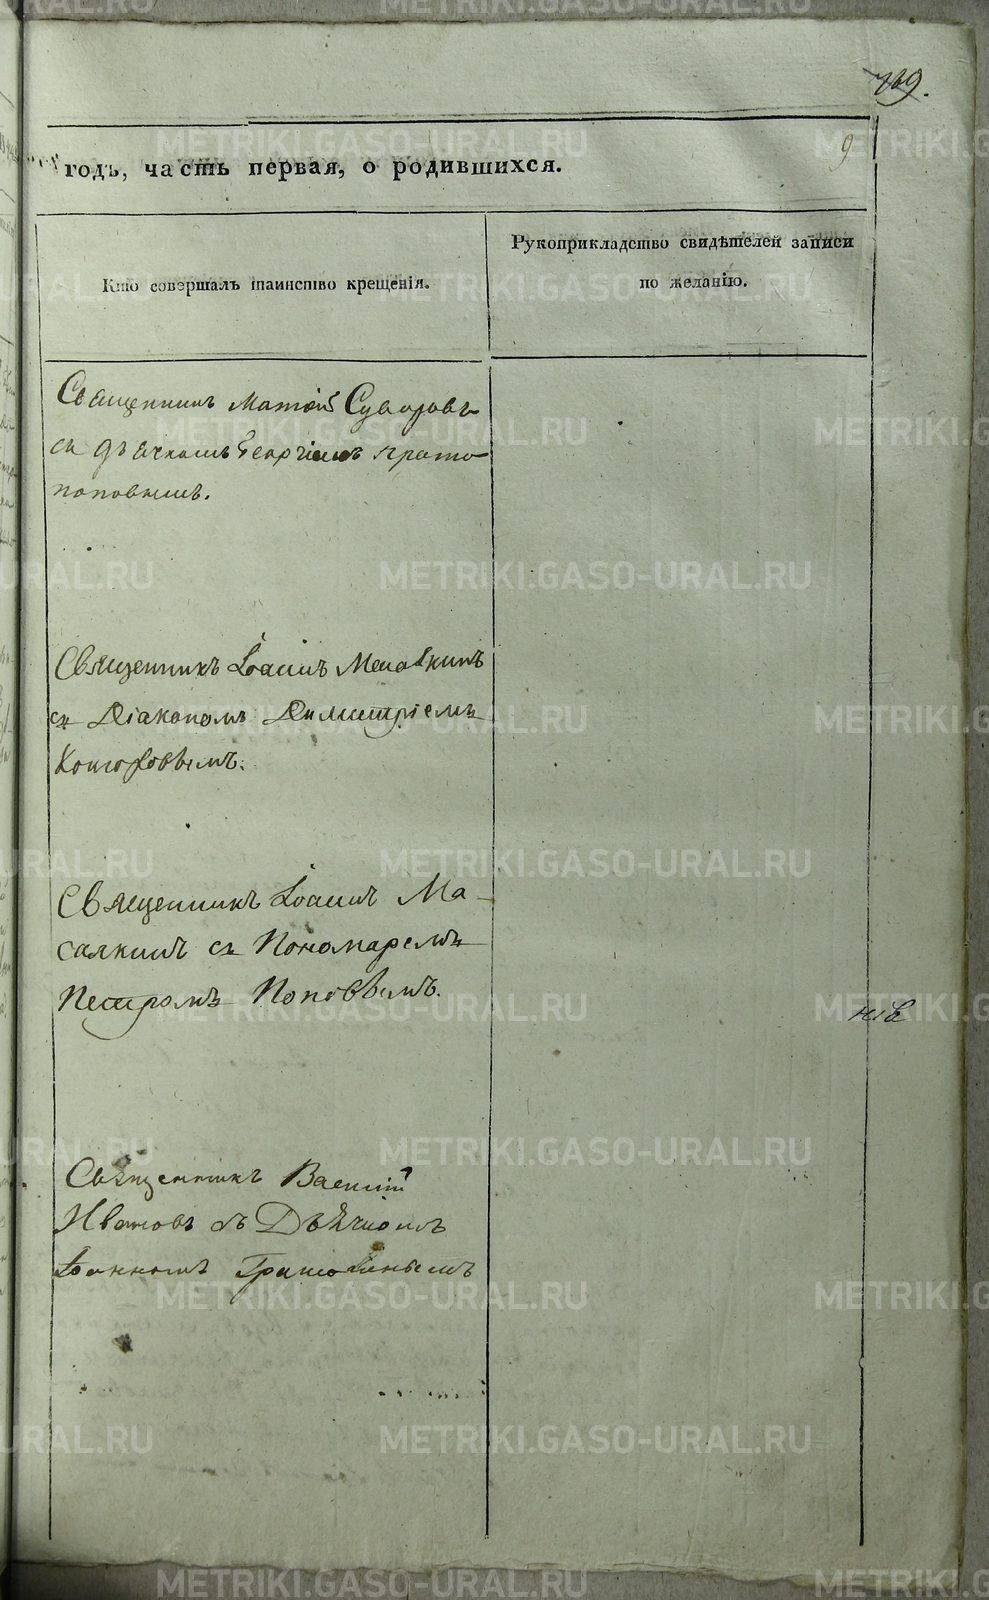 769.
9
годъ, часть первая, о родившихся.
Кто совершалъ таинство крещенія.
Рукоприкладство свидѣтелей записи
по желанію.
Священникъ Матѳій Суворовъ
съ дьячкомъ Георгіемъ Прото-
поповымъ.
Священникъ Іоаннъ Масалкинъ
съ Діакономъ Димитріемъ
Священникъ Іоаннъ Ма-
салкинъ съ Пономаремъ
Петромъ Поповымъ.
Священникъ Василій
Ивановъ съ Дьячкомъ
Іоанномъ
METRIKI.GASO-URAL.RU